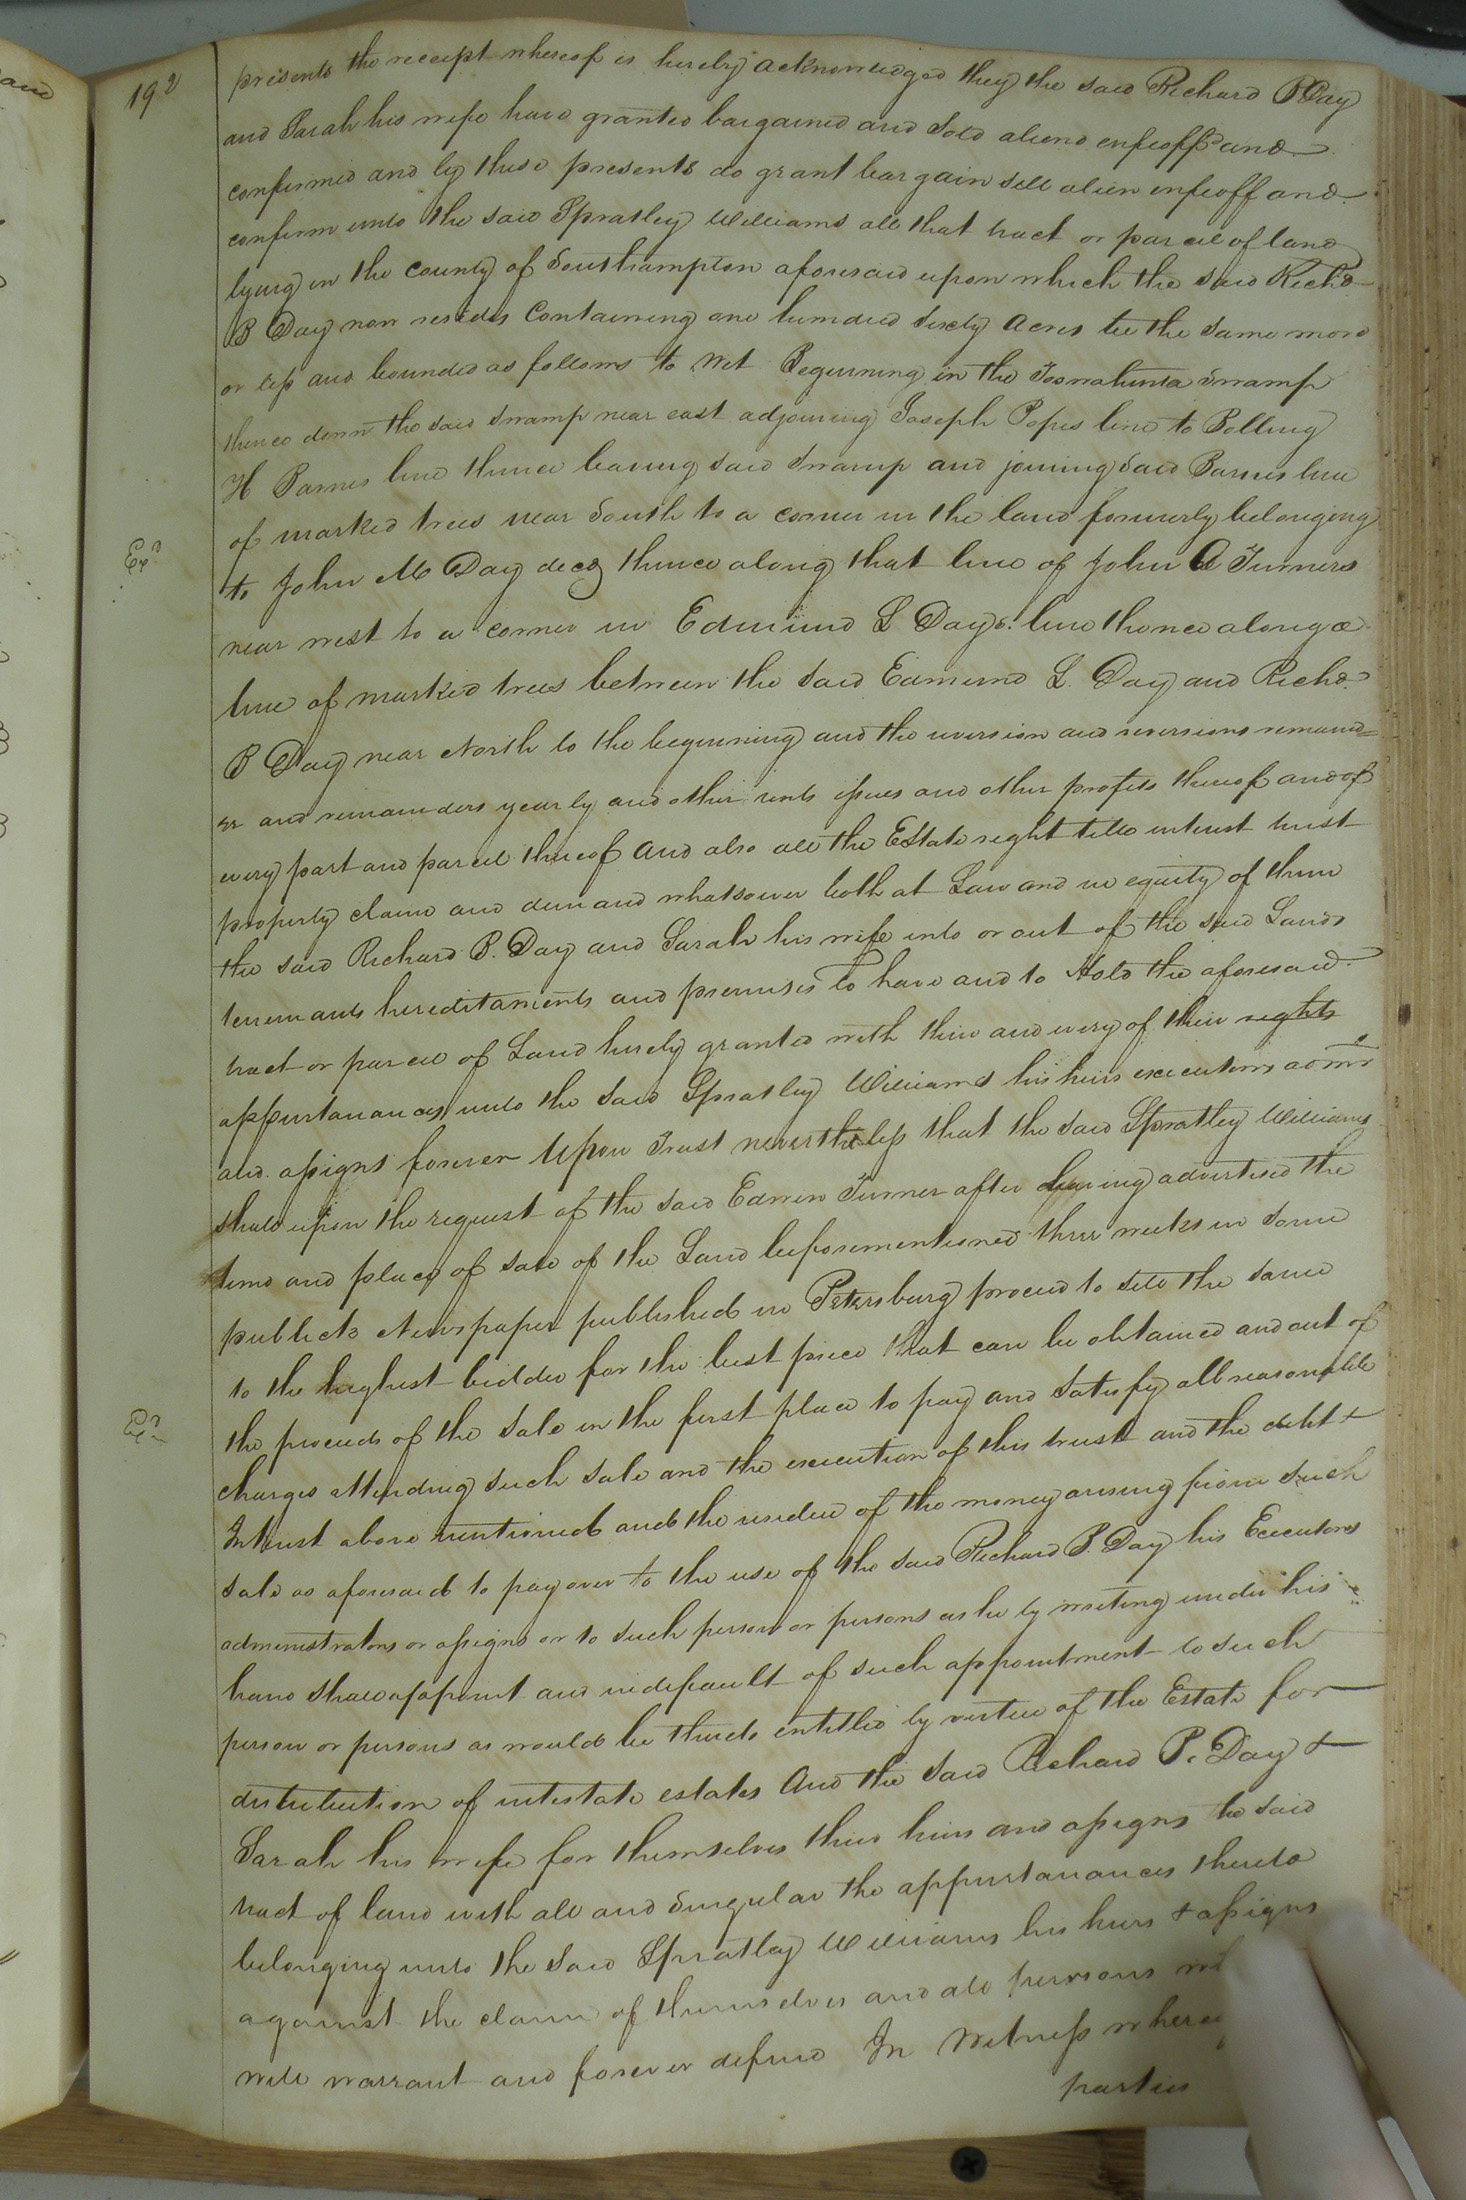 192
presents the receipt whereof is hereby acknowledged they the said Richard B Day
and Sarah his wife have granted bargained and sold aliend enfeoffd and
confirmed and by these presents do grant bargain sell alien enfeoff and
confirm unto the said Spratley Williams all that tract or parcel of land
lying in the county of Southampton aforesaid upon which the said Richd
B Day now resides Containing one hundred sixty Acres be the same more
or less and bounded as follows to Wit Beginning in the Swamp
thence down the said swamp near east adjoining Joseph Popes line to Bolling
H Barnes line thence leaving said swamp and joining said Barnes line
of marked trees near South to a corner in the land formerly belonging
Exd
to John M Day decd thence along that line of John A Turners
near west to a corner in Edmund L Days line thence along a
line of marked trees between the said Edmund L. Day and Richd
B Day near North to the beginning and the reversion and reversions remaind=
er and remainders yearly and other rents issues and other profits thereof and of
every part and parcel thereof And also all the Estate right title interest trust
property claim and demand whatsoever both at Law and in equity of them
the said Richard B. Day and Sarah his wife into or out of the said Lands
tenements hereditaments and premises To have and to Hold the aforesaid
tract or parcel of Land hereby granted with their and every of their rights
appurtanances unto the said Spratley Williams his heirs executors admrs
and assigns forever Upon Trust nevertheless that the said Spratley Williams
shall upon the request of the said Edwin Turner after having advertised the
time and place of sale of the Land beforementioned three weeks in some
public Newspaper published in Petersburg proceed to sell the same
to the highest bidder for the best price that can be obtained and out of
the proceeds of the sale in the first place to pay and satisfy all reasonable
Exd
charges attending such sale and the execution of this trust and the debt &
Interest above mentioned and the residue of the money arising from such
sale as aforesaid to pay over to the use of the said Richard B. Day his Executors
administrators or assigns or to such person or persons as he by writing under his
hand shall appoint and in default of such appointment to such
person or persons as would be thereto entitled by virtue of the Estate for
distribution of intestate estates And the said Richard B. Day &
Sarah his wife for themselves their heirs and assigns the said
tract of land with all and singular the appurtanances thereto
belonging unto the said Spratley Williams his heirs & assigns
against the claim of themselves and all persons
will warrant and forever defend In Witness
parties